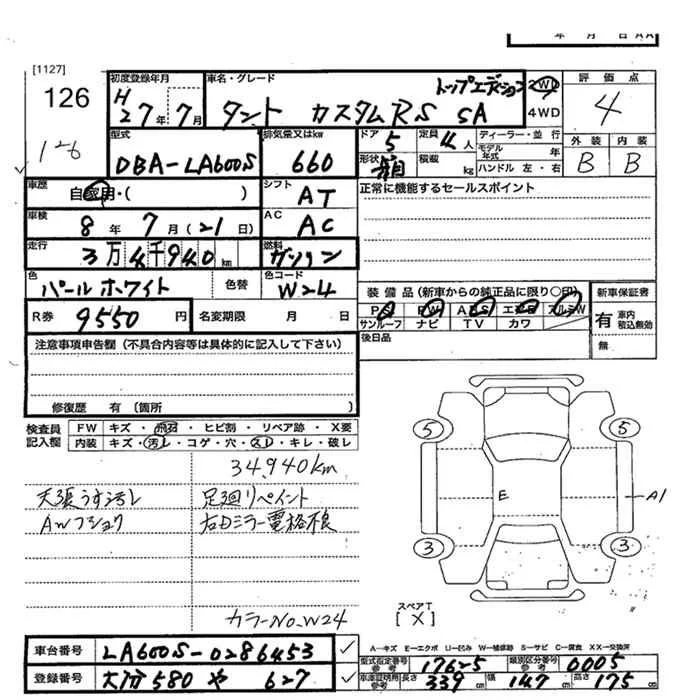 年 月 日 AA
[1127]
126
126
初度登録年月
H27年7月
車名・グレード
トップエディション
タント カスタムRS SA
2WD
4WD
評価点
4
外装 内装
B B
型式
DBA-LA600S
排気量又はkw
660
ドア 5
定員 4人
形状 箱
積載 kg
ディーラー・並行
モデル年式 年
ハンドル 左・右
車歴
自家用・( )
シフト
AT
正常に機能するセールスポイント
車検
8年7月(21日)
AC
AC
走行
3万4千940km
燃料
ガソリン
色
パールホワイト
色替
色コード
W24
装備品(新車からの純正品に限り○印)
PS PW ABS エアB アルミW
サンルーフ ナビ TV カワ
新車保証書
有 車内積込無効
無
R券 9550円
名変期限 月 日
後日品
注意事項申告欄(不具合内容等は具体的に記入して下さい)
修復歴 有(箇所 )
検査員記入欄
FW キズ・飛石・ヒビ割・リペア跡・X要
内装 キズ・汚レ・コゲ・穴・スレ・キレ・破レ
34,940km
天張うす汚レ 足廻リペイント
AWフショク 右Dミラー電格不良
カラーNo.W24
5 5
E
A1
3 3
スペアT
[X]
車台番号 LA600S-0286453
登録番号 大分580 や 627
A-キズ E-エクボ U-凹み W-補修跡 S-サビ C-腐食 XX-交換済
型式指定番号 参考 17625
類別区分番号 参考 0005
車庫証明用 参考 長さ 339 幅 147 高さ 175cm